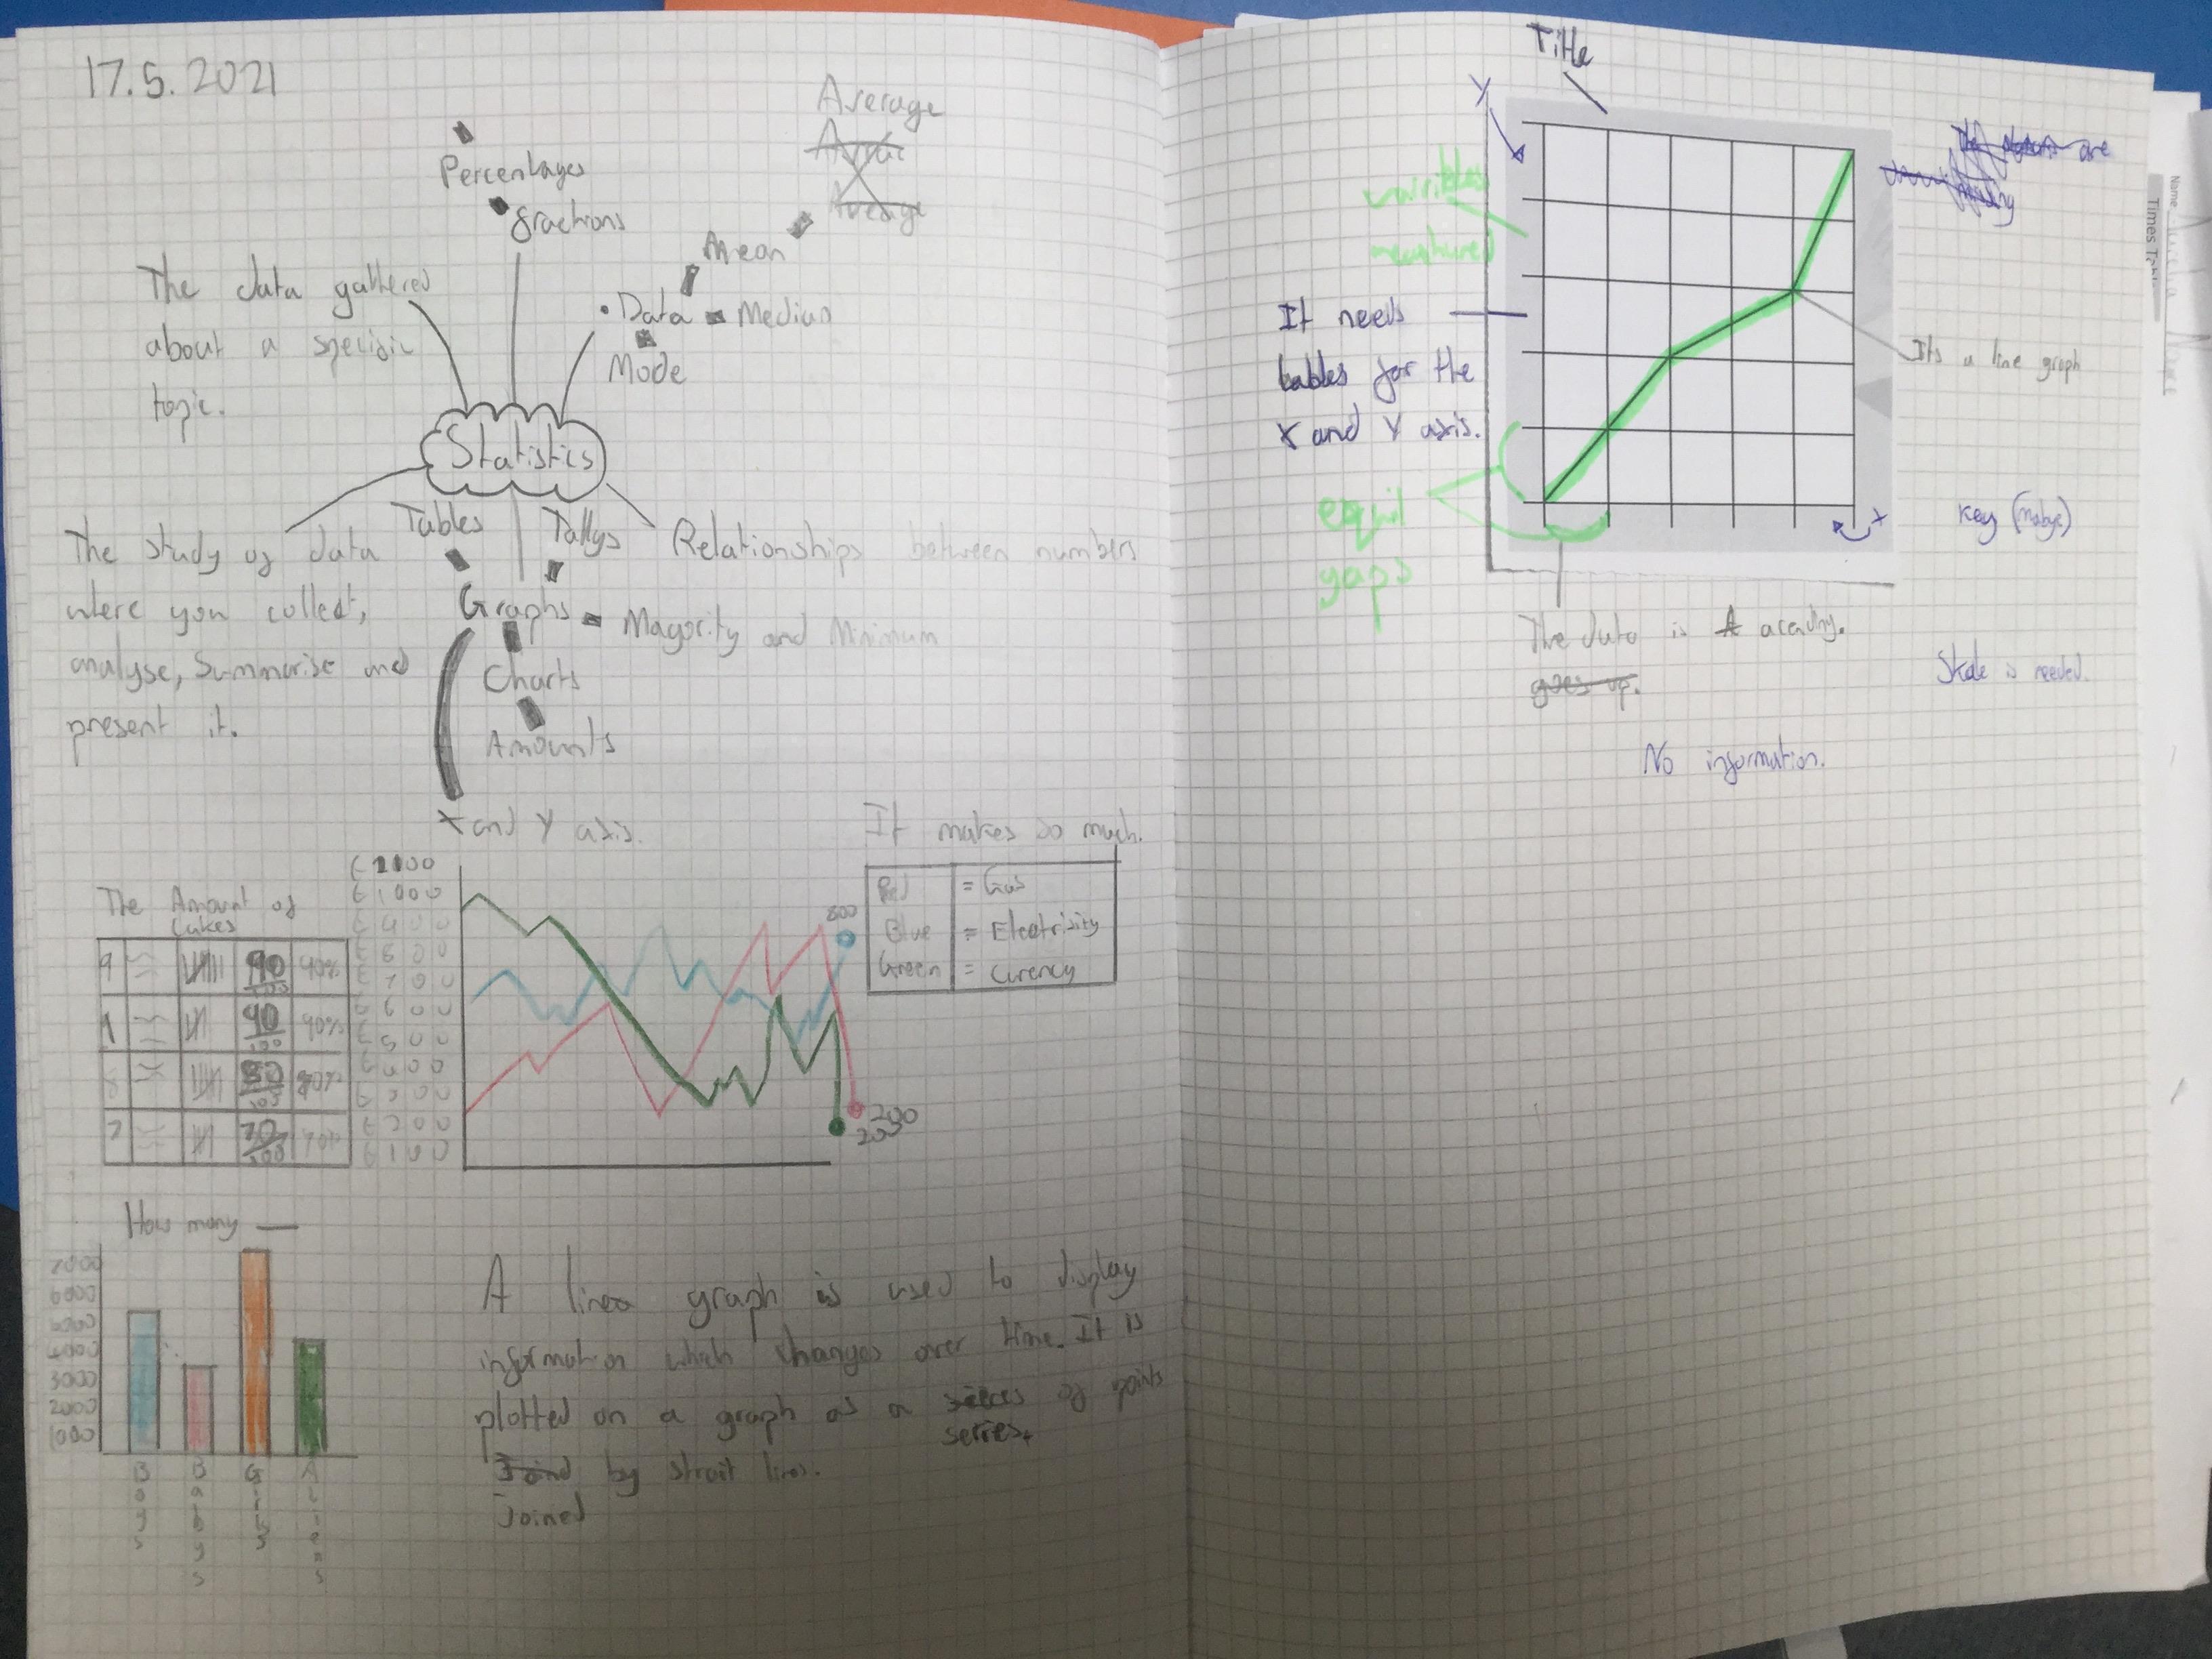 17.5.2021
Percentages
fractions
Average
Average
Mean
Data
Median
Mode
The data gathered
about a specific
topic.
Statistics
Tables
Tallys
Relationships between numbers
The study of data
where you collect,
analyse, Summarise and
present it.
Graphs
Magority and Minimum
Charts
Amounts
X and Y axis.
It makes so much.
Red = Gas
Blue = Electrisity
Green = Curency
The Amount of
Cakes
9 90/100 90%
9 90/100 90%
8 80/100 80%
7 70/100 70%
£1100
£1000
£900
£800
£700
£600
£500
£400
£300
£200
£100
800
200
How many —
7000
6000
5000
4000
3000
2000
1000
Boys
Babys
Girls
Aliens
A line graph is used to display
information which changes over time. It is
plotted on a graph as a of points
series
by strait lines.
Joined
Title
Y
measured
It needs
lables for the
X and Y axis.
equil
gaps
are
Its a line graph
X
Key (mabye)
The data is
goes up.
is needed.
No information.
Name
Times